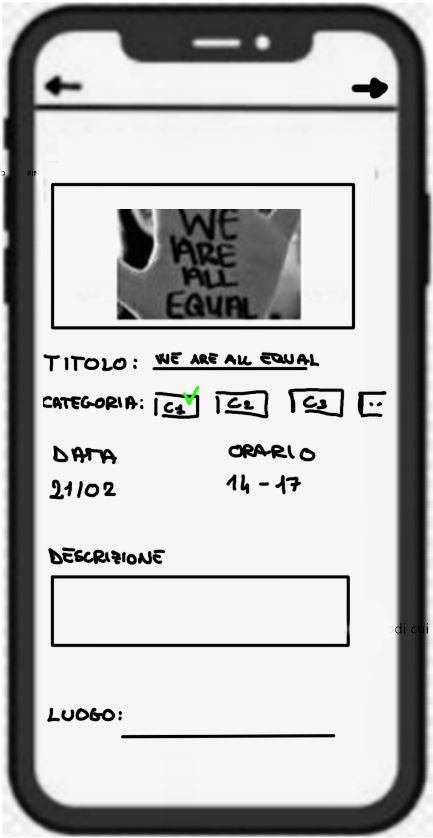 WE
ARE
ALL
EQUAL
TITOLO: WE ARE ALL EQUAL
CATEGORIA: C1 C2 C3 ..
DATA ORARIO
21/02 14-17
DESCRIZIONE
di cui
LUOGO: